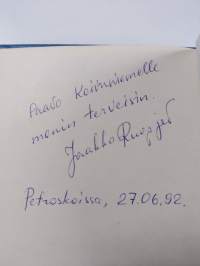 Paavo Koivuniemelle
monin terveisin.
Jaakko Rugojev
Petroskoissa, 27.06.92.